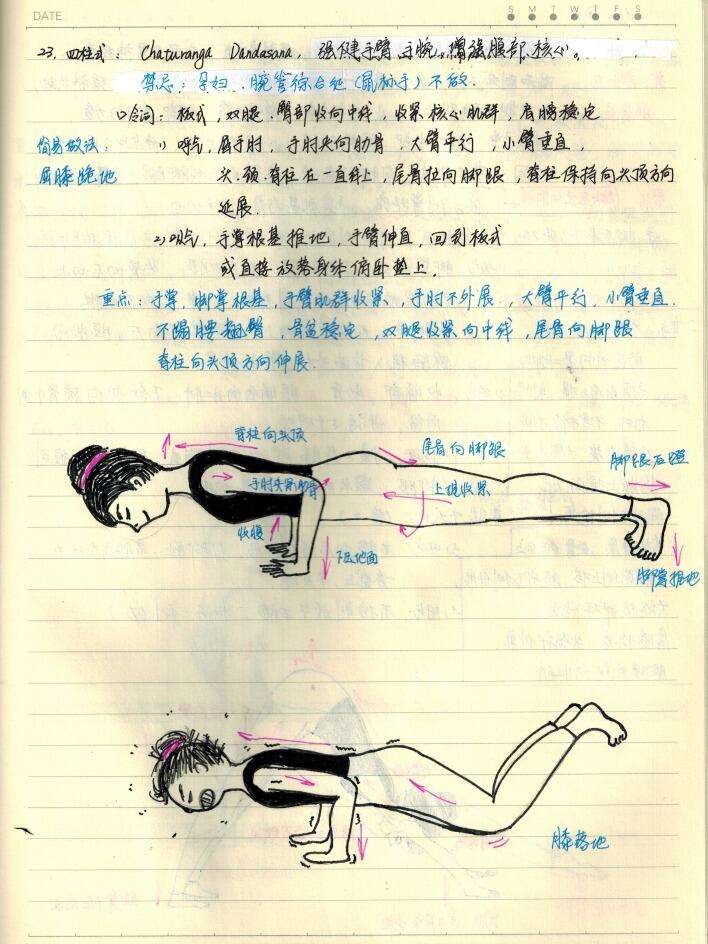 DATE
S M T W T F S
23. 四柱式: Chaturanga Dandasana, 强健手臂、手腕。增强腹部、核心。
禁忌: 孕妇. 腕管综合征(鼠标手)不做.
口令词: 板式, 双腿. 臀部收向中线, 收紧核心肌群, 肩膀稳定
简易做法: 1) 呼气, 屈手肘, 手肘夹向肋骨, 大臂平行, 小臂垂直,
屈膝跪地 头. 颈. 脊柱在一直线上, 尾骨拉向脚跟, 脊柱保持向头顶方向
延展.
2) 吸气, 手掌根基推地, 手臂伸直, 回到板式
或直接放落身体俯卧垫上.
重点: 手掌, 脚掌根基, 手臂肌群收紧, 手肘不外展, 大臂平行. 小臂垂直.
不塌腰翘臀, 骨盆稳定, 双腿收紧向中线, 尾骨向脚跟
脊柱向头顶方向伸展.
脊柱向头顶
尾骨向脚跟
脚跟后蹬
手肘夹紧肋骨
上提收紧
收腹
下压地面
脚掌推地
膝落地